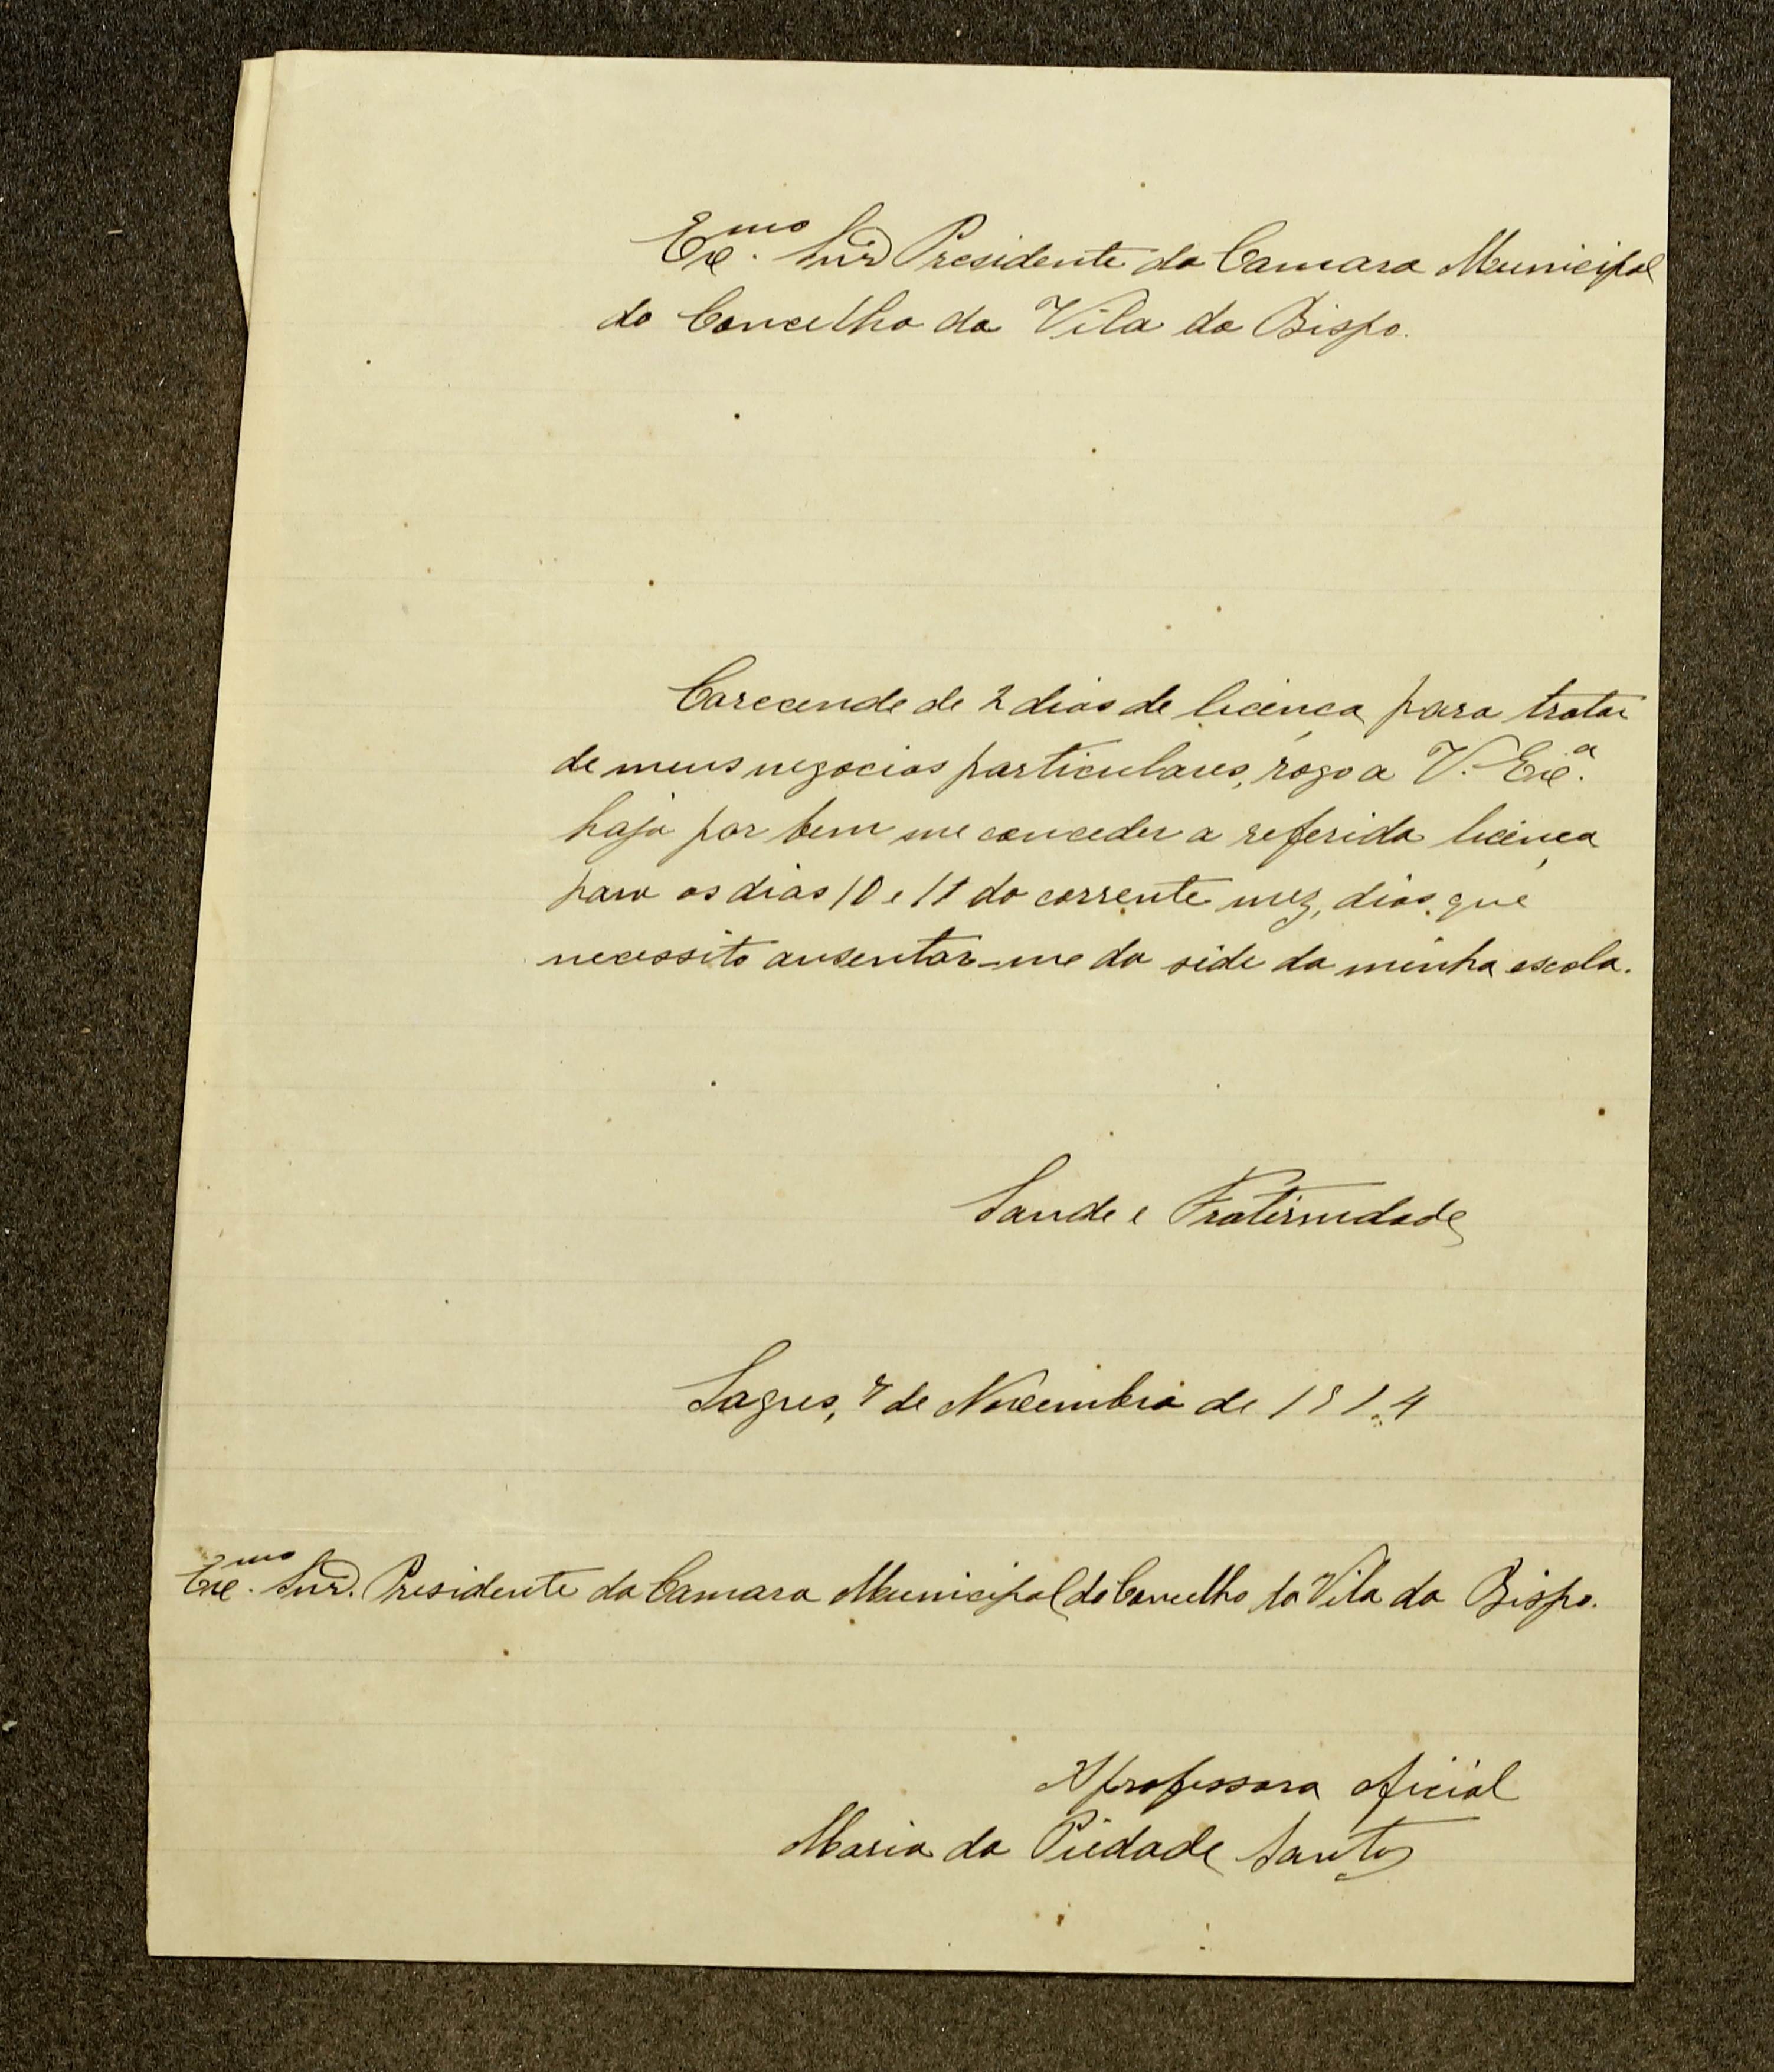 Exc.mo Snr. Presidente da Camara Municipal
do Concelho da Vila do Bispo.
Carecendo de 2 dias de licença para tratar
de meus negocios particulares, rogo a V. Exc.a
haja por bem me conceder a referida licença
para os dias 10 e 11 do corrente mez, dias que
necessito ausentar-me da séde da minha escola.
Saude e Fraternidade
Sagres, 7 de Novembro de 1914
Exc.mo Snr. Presidente da Camara Municipal do Concelho da Vila do Bispo.
A professora oficial
Maria da Piedade Santos